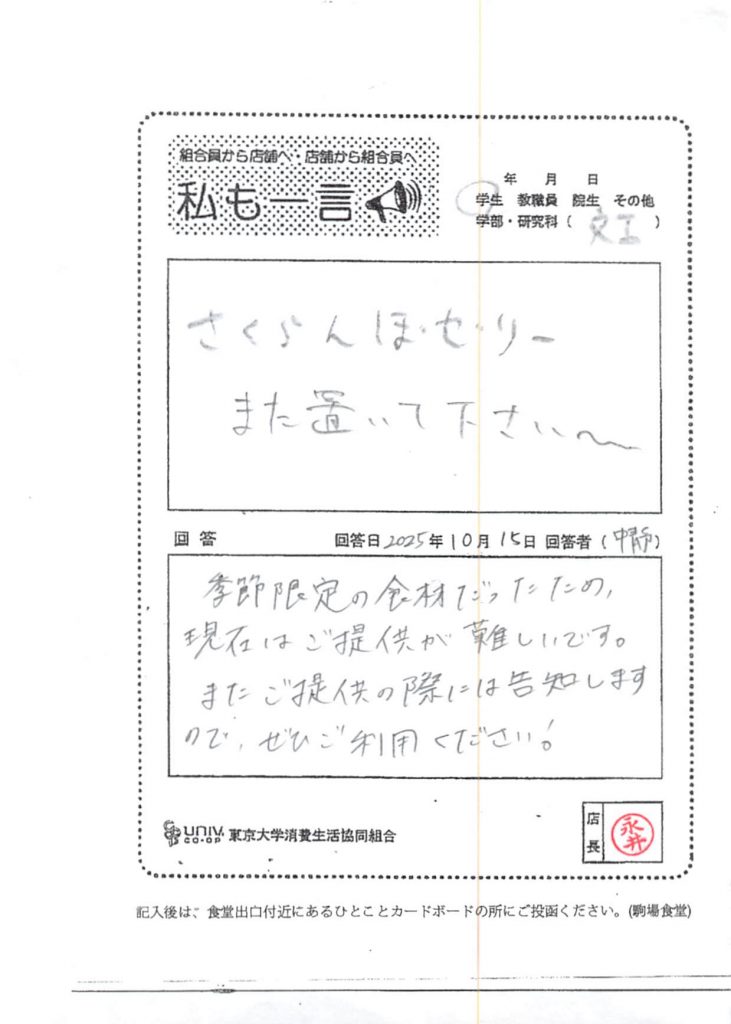 組合員から店舗へ・店舗から組合員へ
私も一言
年 月 日
学生 教職員 院生 その他
学部・研究科 ( 文Ⅰ )
さくらんぼゼリー
また置いて下さい〜
回答 回答日2025年10月15日 回答者 (中静)
季節限定の食材だったため,
現在はご提供が難しいです。
またご提供の際には告知します
ので, ぜひご利用ください!
UNIV. CO-OP 東京大学消費生活協同組合
店長 永井
記入後は、食堂出口付近にあるひとことカードボードの所にご投函ください。(駒場食堂)